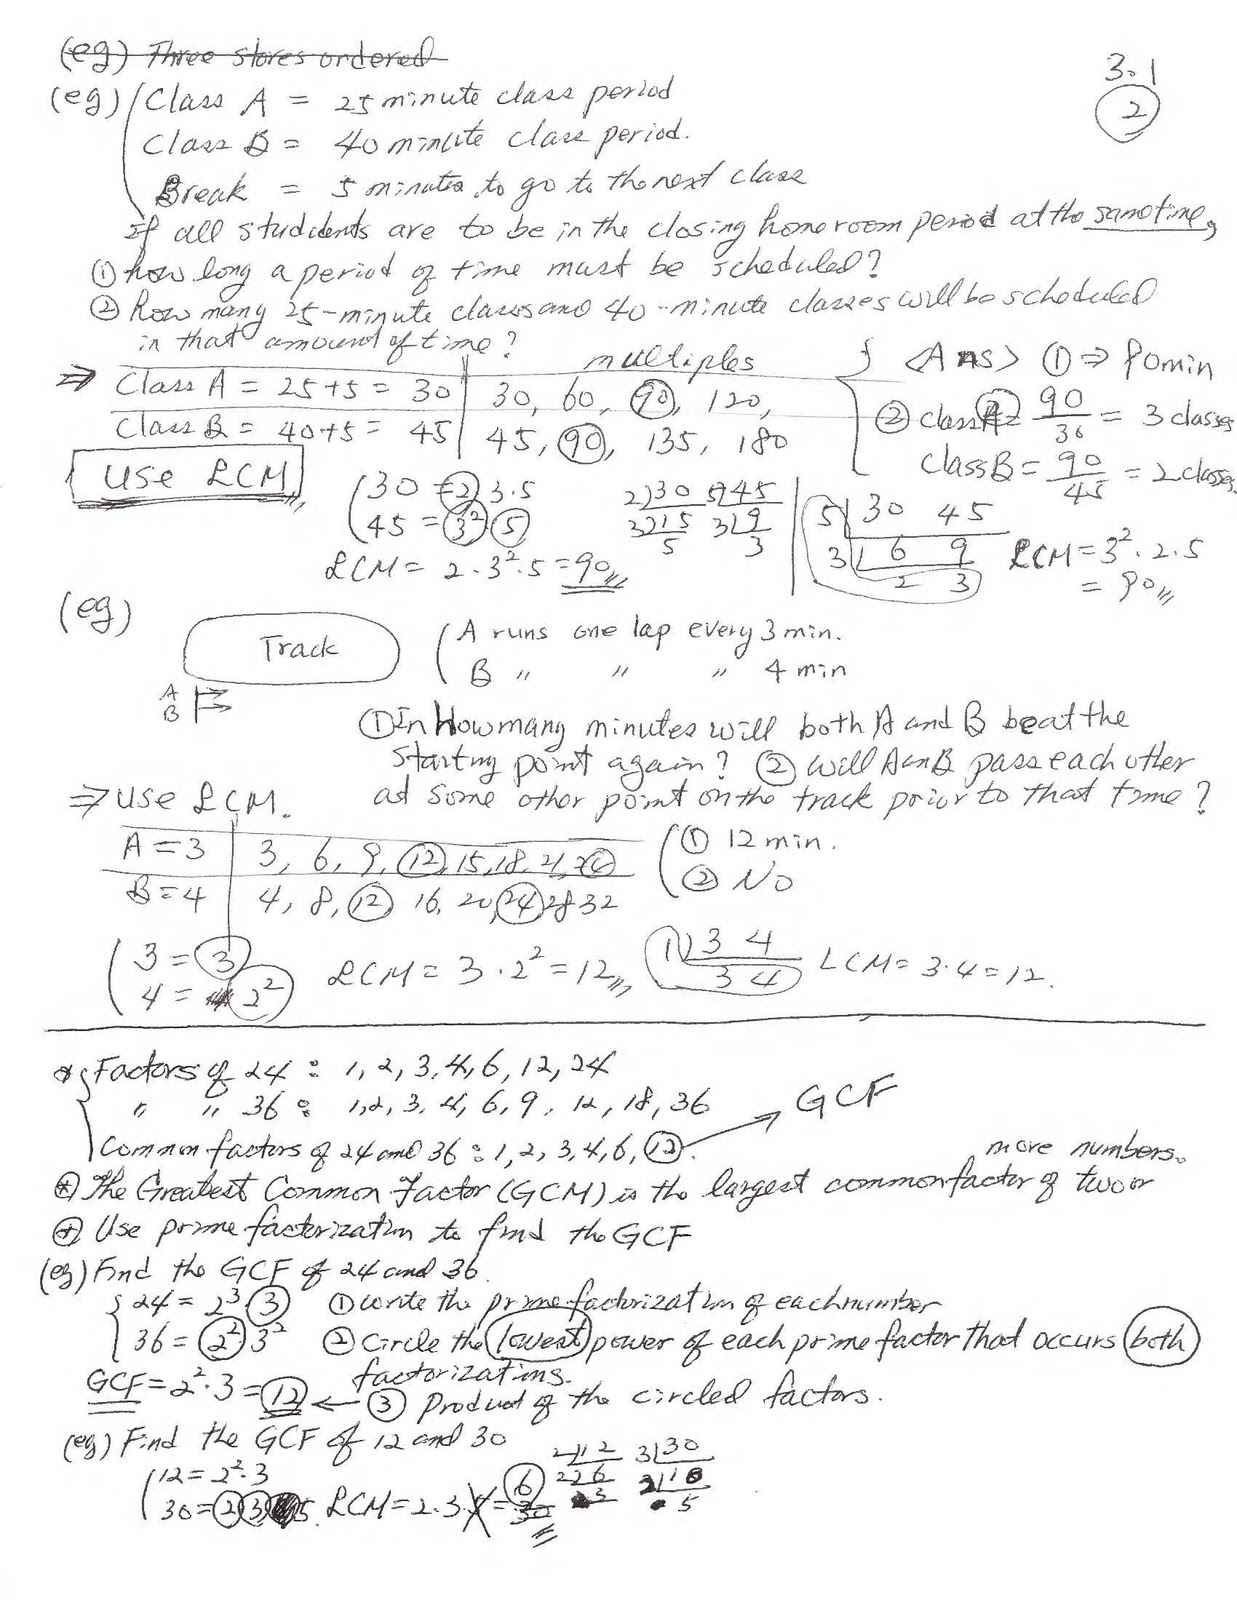 (eg) Three stores ordered
3.1
2
(eg) Class A = 25 minute class period
Class B = 40 minute class period.
Break = 5 minutes to go to the next class
If all studidents are to be in the closing homeroom period at the same time,
① how long a period of time must be scheduled?
② How many 25-minute classes and 40-minute classes will be scheduled
in that amount of time?
multiples
⇒ Class A = 25+5 = 30 | 30, 60, 90, 120,
Class B = 40+5 = 45 | 45, 90, 135, 180
<Ans> ① ⇒ 90min
② class A = 90/30 = 3 classes
class B = 90/45 = 2 classes.
Use LCM
30 = 2 3·5
45 = 3² 5
LCM = 2·3²·5 = 90
2)30 5)45
3)15 3)9
5 3
5) 30 45
3) 6 9
2 3
LCM = 3²·2·5
= 90
(eg)
Track
A runs one lap every 3 min.
B 〃 〃 〃 4 min
A
B
① In How many minutes will both A and B be at the
starting point again? ② will A an B pass each other
at some other point on the track prior to that time?
⇒ Use LCM.
A = 3 | 3, 6, 9, 12, 15, 18, 21, 24
B = 4 | 4, 8, 12 16, 20, 24 28 32
① 12 min.
② No
3 = 3
4 = 2²
LCM = 3·2² = 12
1) 3 4
3 4
LCM = 3·4 = 12.
* Factors of 24 : 1, 2, 3, 4, 6, 12, 24
〃 〃 36 : 1, 2, 3, 4, 6, 9, 12, 18, 36
GCF
Common factors of 24 and 36 : 1, 2, 3, 4, 6, 12.
more numbers.
* The Greatest Common Factor (GCM) is the largest common factor of two or
* Use prime factorization to find the GCF
(eg) Find the GCF of 24 and 36.
24 = 2³ 3
36 = 2² 3²
① Write the prime factorization of each number
② Circle the lowest power of each prime factor that occurs both
factorizations.
GCF = 2²·3 = 12 ← ③ Product of the circled factors.
(eg) Find the GCF of 12 and 30
12 = 2²·3
30 = 2 3 5.
LCM = 2·3 = 6
30
2)12 3)30
2)6 2)10
3 5